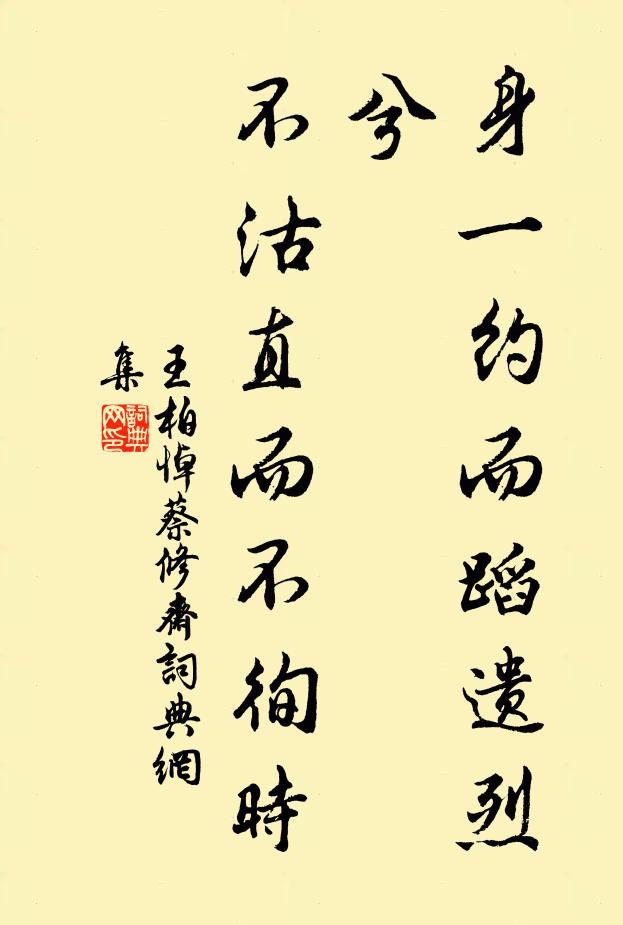 身一约而蹈遗烈
兮
不沽直而不徇時
王柏悼蔡修齋詞典網
集
詞典
网印